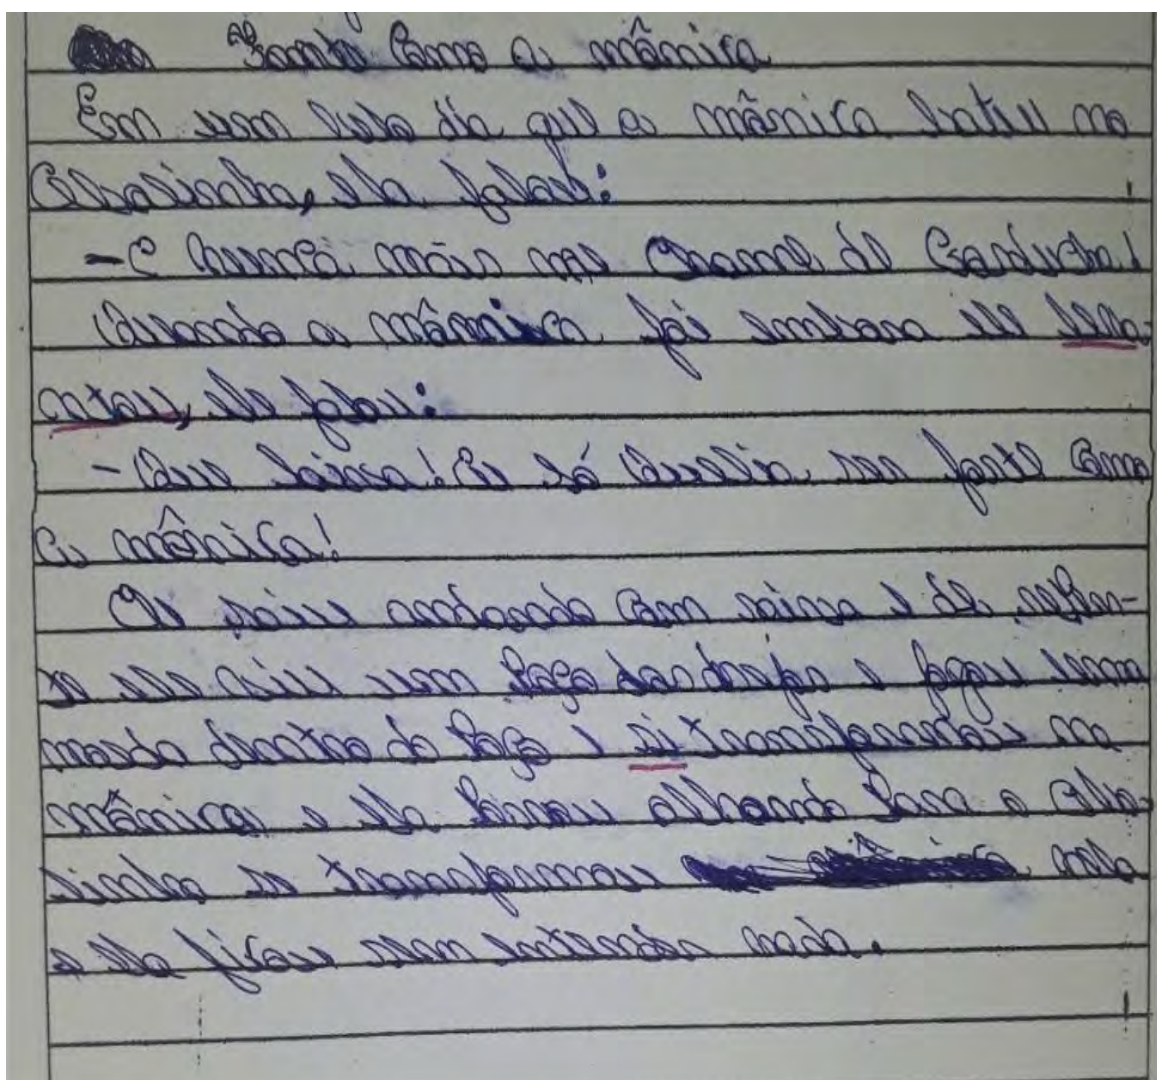 Forte Como a mônica
Em um belo dia que a mônica bateu no
Cebolinha, ela falou:
- E nunca mais me chame de Gorducha!
Quando a mônica foi embora ele leva
ntou, ele falou:
- Que raiva! Eu só Queria ser forte Como
a mônica!
Ele saiu andando Com raiva e de repen-
te ele viu um Poço dos desejos e jogou uma
moeda dentro do Poço e si transformou na
mônica e ela Parou olhando Para o Cebo
linha se transformou nela
e ela ficou sem entender nada.